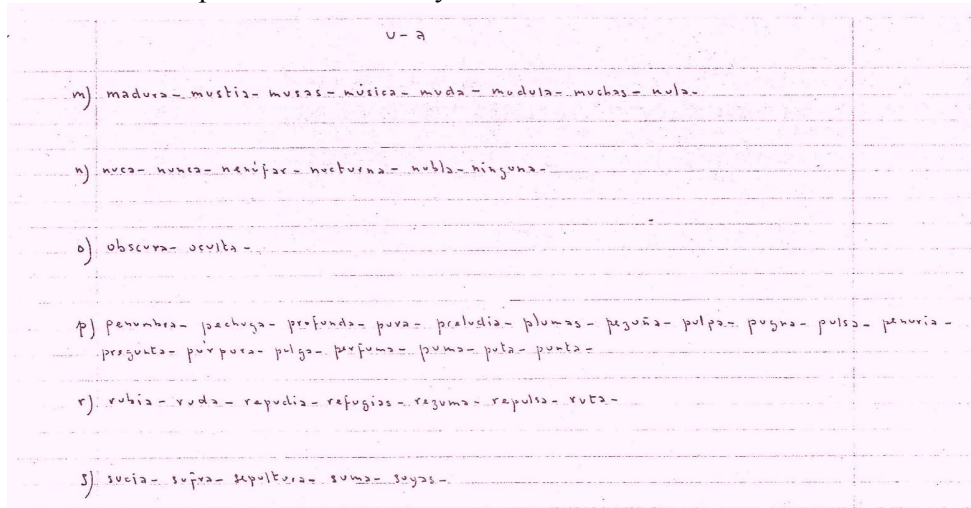 u - a
m) madura - mustia - musas - música - muda - modula - muchas - nula -
n) nuca - nunca - nenúfar - nocturna - nubla - ninguna -
o) obscura - oculta -
p) penumbra - pechuga - profunda - pura - preludia - plumas - pezuña - pulpa - pugna - pulsa - penuria -
pregunta - púrpura - pulga - perfuma - puma - puta - punta -
r) rubia - ruda - repudia - refugias - rezuma - repulsa - ruta -
s) sucia - sufra - sepultura - suma - suyas -